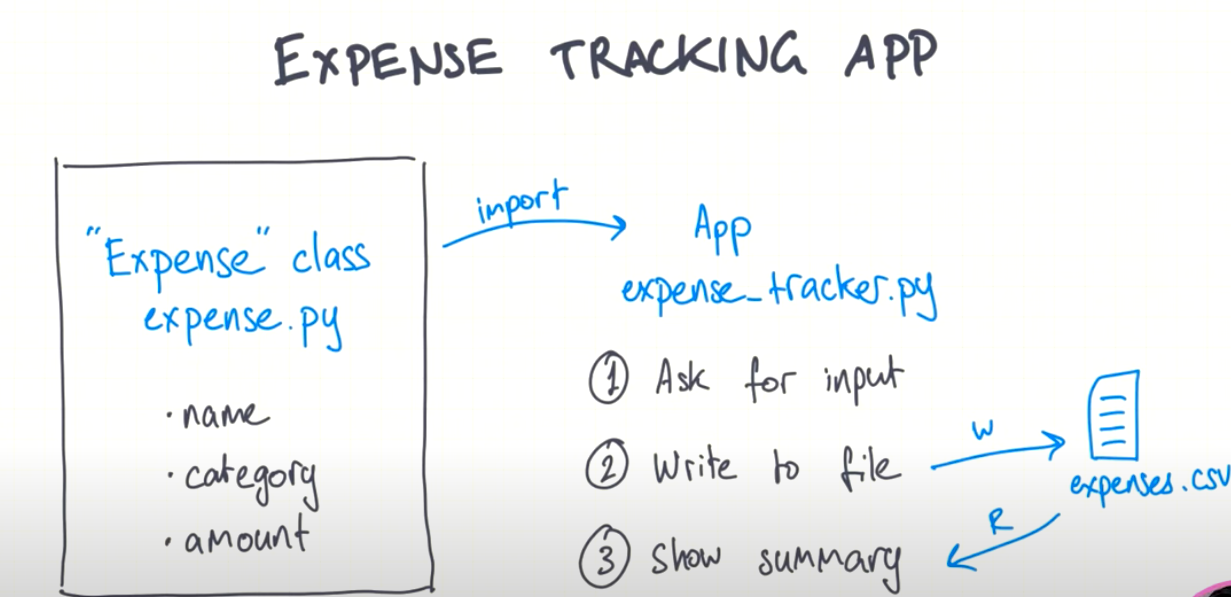 EXPENSE TRACKING APP
"Expense" class
expense.py
· name
· category
· amount
import
App
expense_tracker.py
① Ask for input
② Write to file
W
expenses.csv
R
③ Show summary